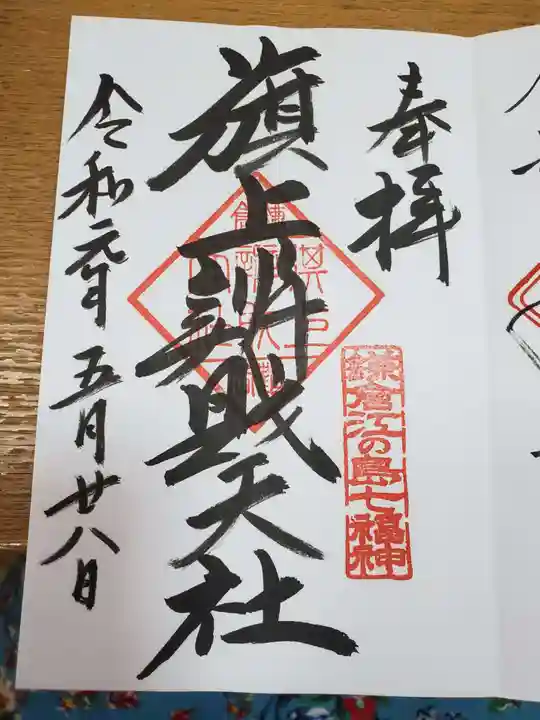 奉拝
鎌倉江の島七福神
旗上辨財天社
令和元年五月廿八日